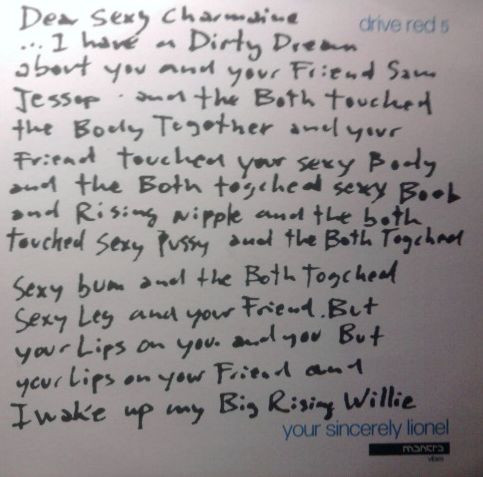 Dear Sexy Charmaine
drive red 5
... I have a Dirty Dream
about you and your Friend Sam
Jessop. and the Both touched
the Body Together and your
Friend touched your sexy Body
and the Both togched sexy Boob
and Rising nipple and the both
touched Sexy Pussy and the Both Togched
Sexy bum and the Both Togched
Sexy Leg and your Friend. But
your Lips on you. and you But
your Lips on your Friend and
I wake up my Big Rising Willie
your sincerely lionel
mantra
vibes